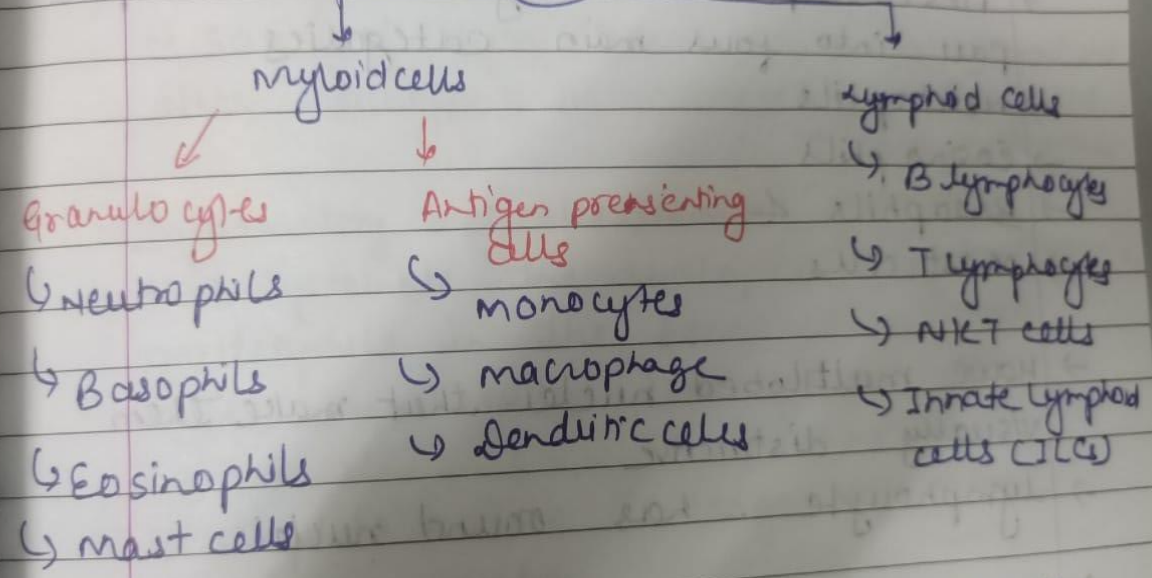 Myloid cells
Lymphoid cells
Granulocytes
↳ Neutrophils
↳ Basophils
↳ Eosinophils
↳ Mast cells
Antigen prensenting
cells
↳ monocytes
↳ macrophage
↳ Dendritic cells
↳ B lymphocytes
↳ T lymphocytes
↳ NKT cells
↳ Innate lymphoid
cells (ILCs)